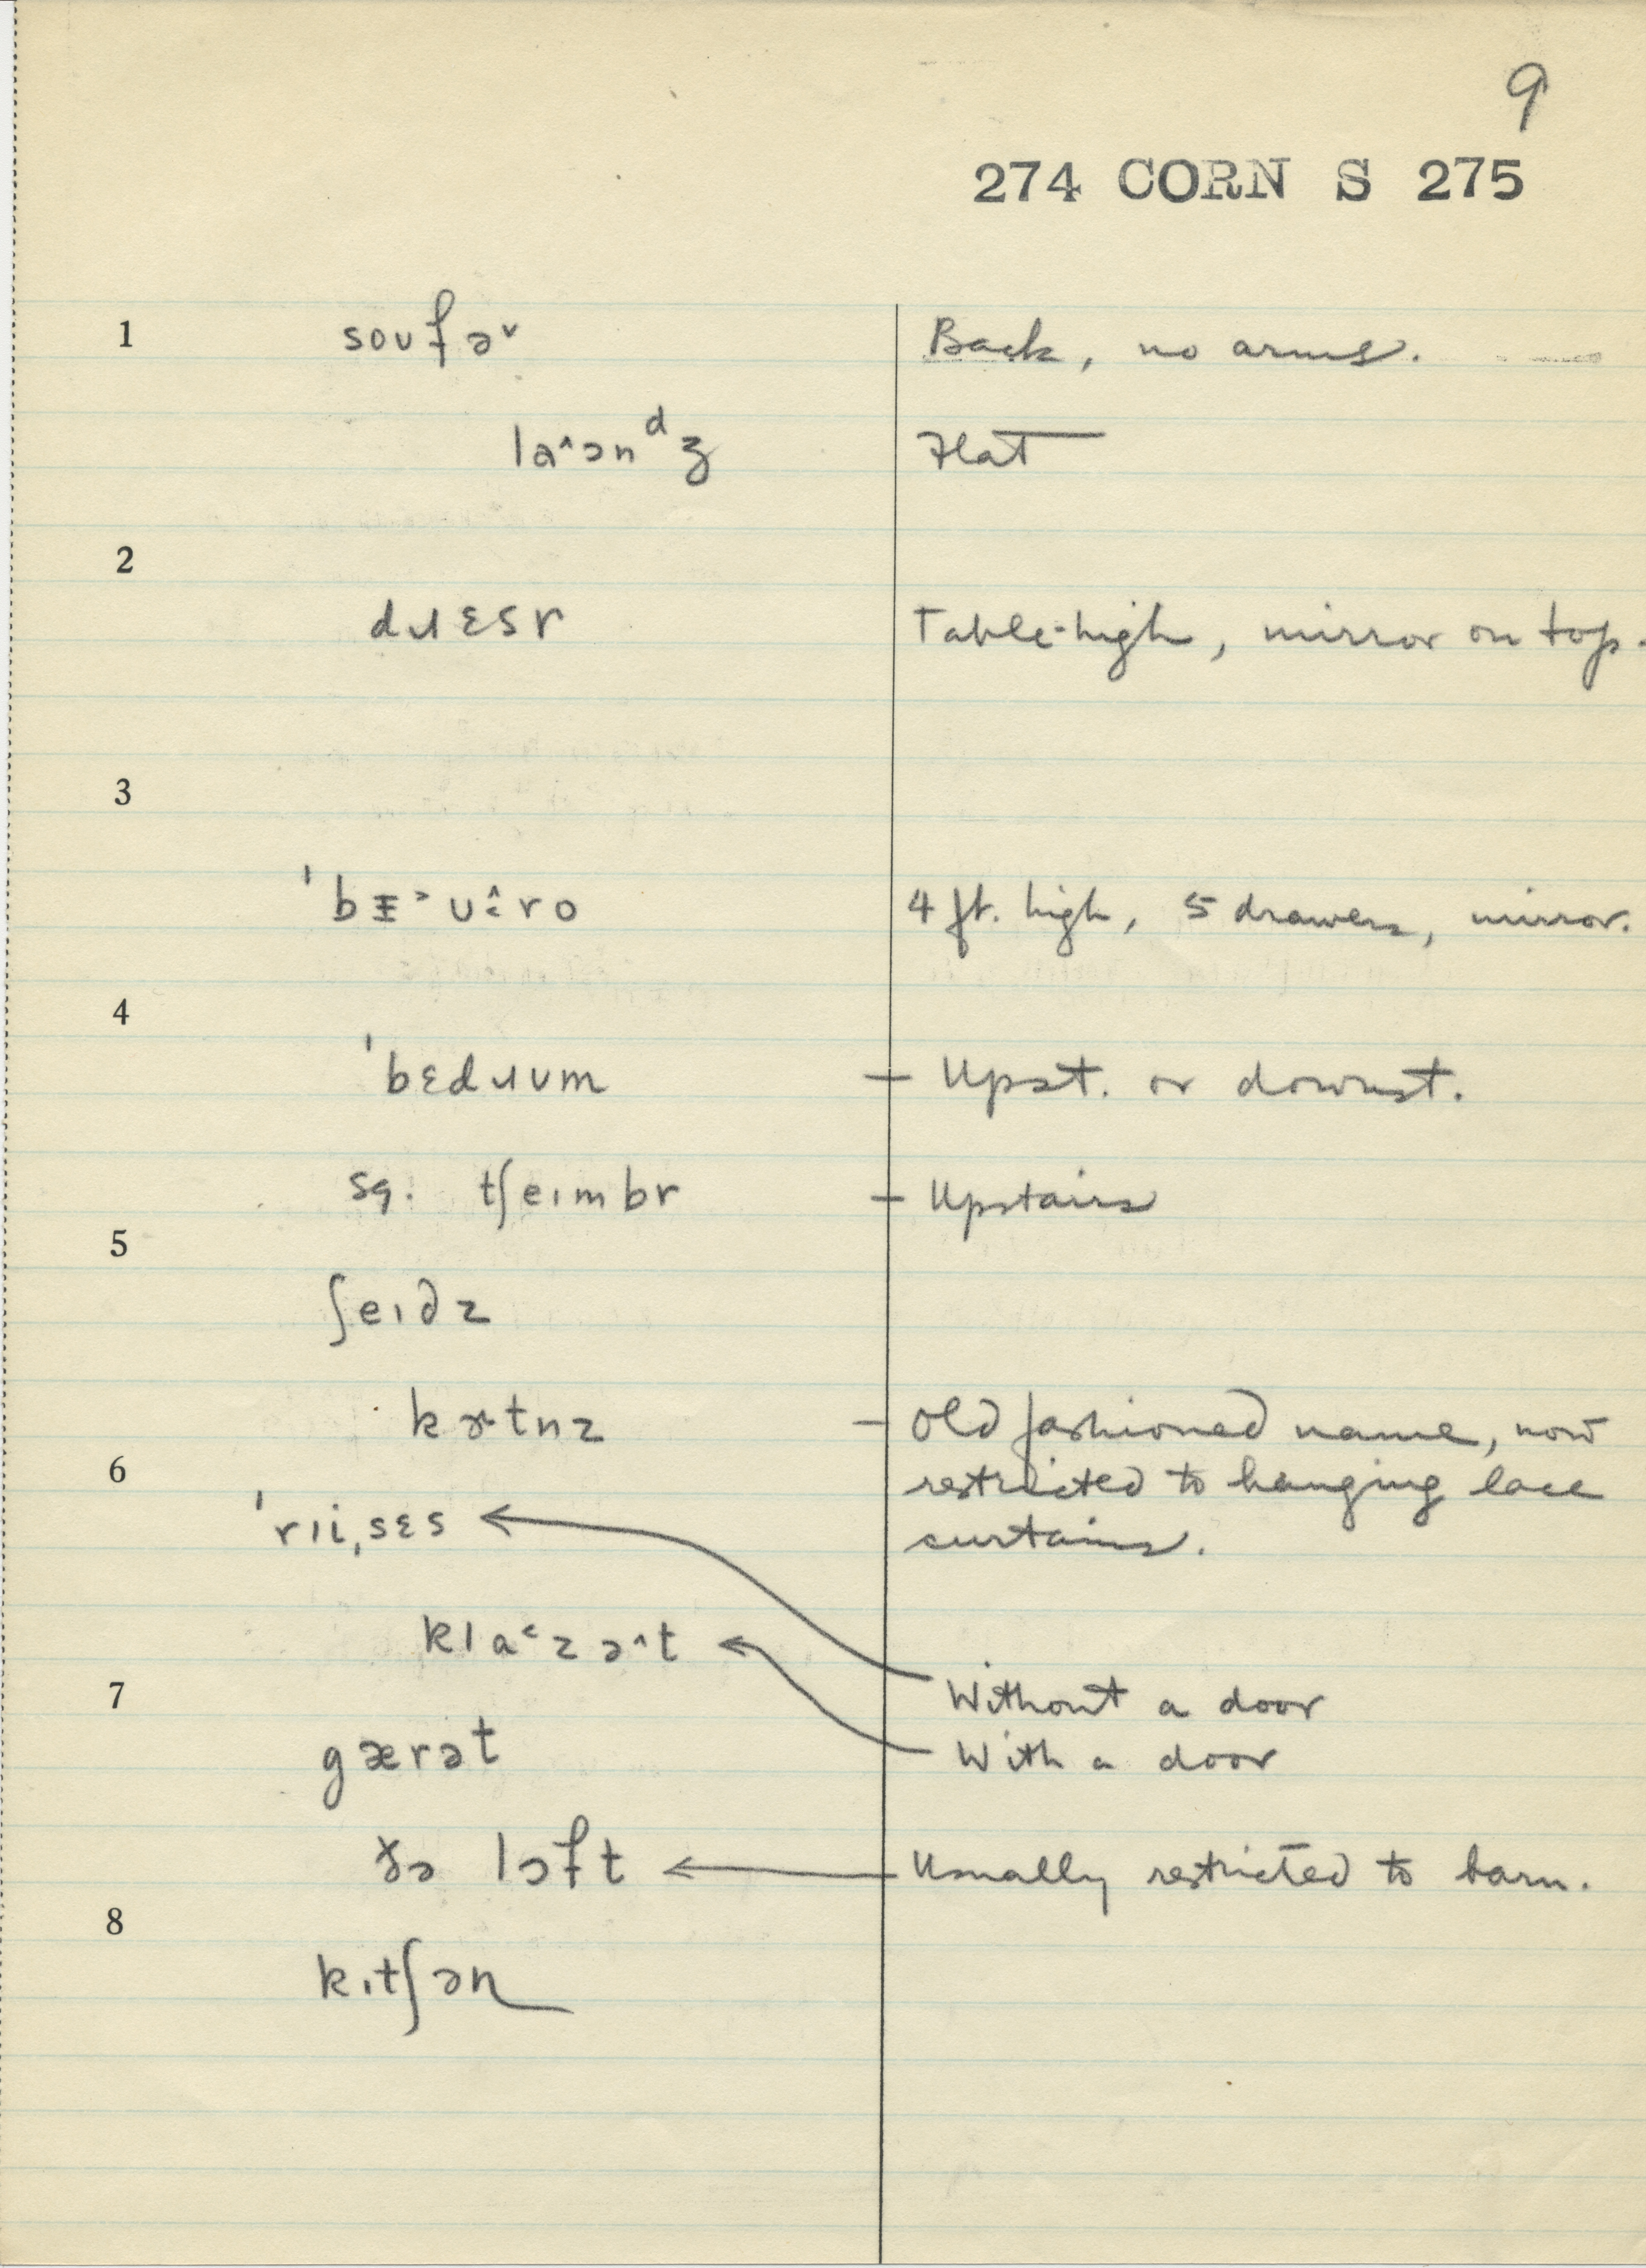 9
274 CORN S 275
1 soufə˅ Back, no arms.
la˄ənᵈʒ Flat
2
dɹɛsr Table-high, mirror on top.
3
ˈbɪ˃ʊ˄ro 4 ft. high, 5 drawers, mirror.
4
ˈbɛdɹʊm – Upst. or downst.
sq. tʃeɪmbr – Upstairs
5
ʃeɪdz
kɚtnz – Old fashioned name, now
6 restricted to hanging lace
ˈrɪiˌsɛs curtains.
kla˂zə˄t
7 Without a door
gærət With a door
ðə lɔft Usually restricted to barn.
8
kɪtʃən